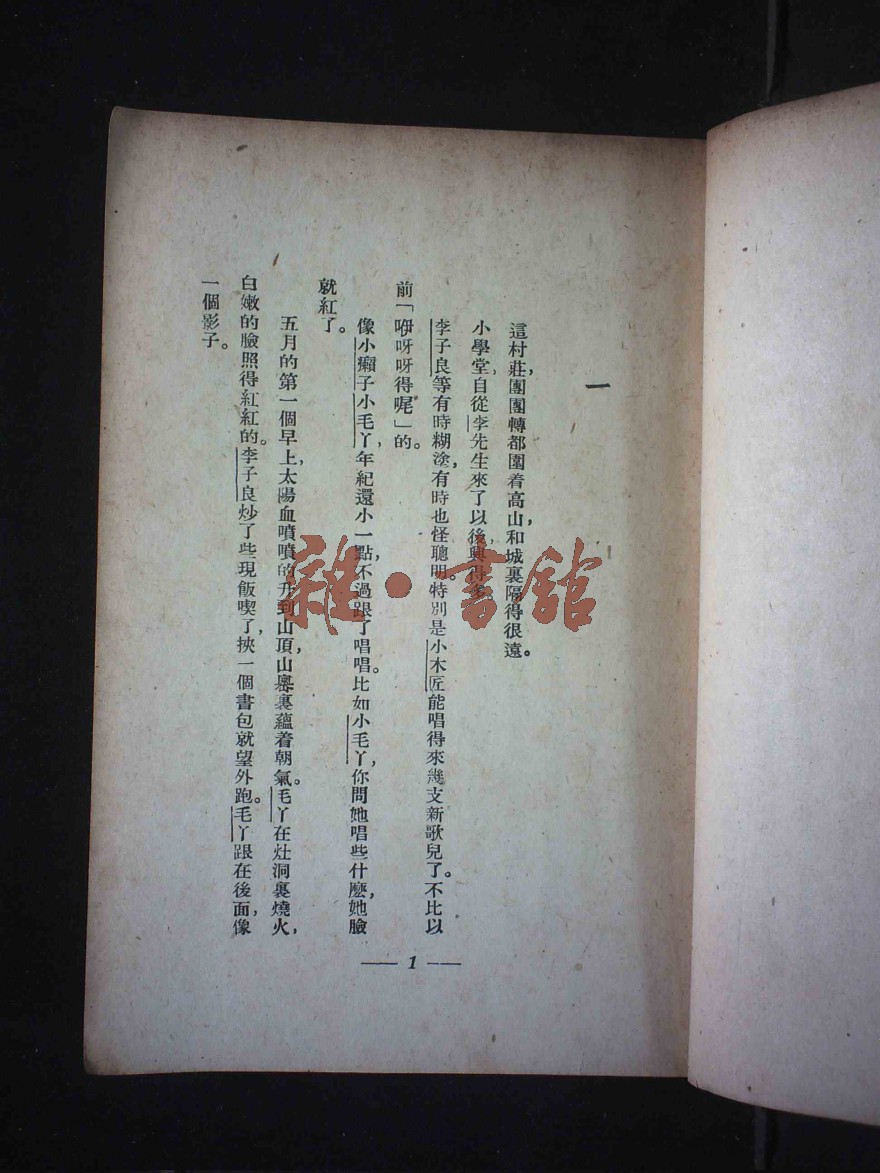 一
這村莊團團轉都圍着高山,和城裏隔得很遠。
小學堂,自從李先生來了以後,興得多。
李子良等有時糊塗,有時也怪聰明。特別是小木匠能唱得來幾支新歌兒了。不比以
前「咿呀呀得㖿」的。
像小癩子小毛丫,年紀還小一點,不過跟了唱唱。比如小毛丫,你問她唱些什麼,她臉
就紅了。
五月的第一個早上,太陽血噴噴的升到山頂,山嶴裏蘊着朝氣。毛丫在灶洞裏燒火,
白嫩的臉照得紅紅的。李子良炒了些現飯喫了,挾一個書包就望外跑。毛丫跟在後面,像
一個影子。
— 1 —
雜·書館